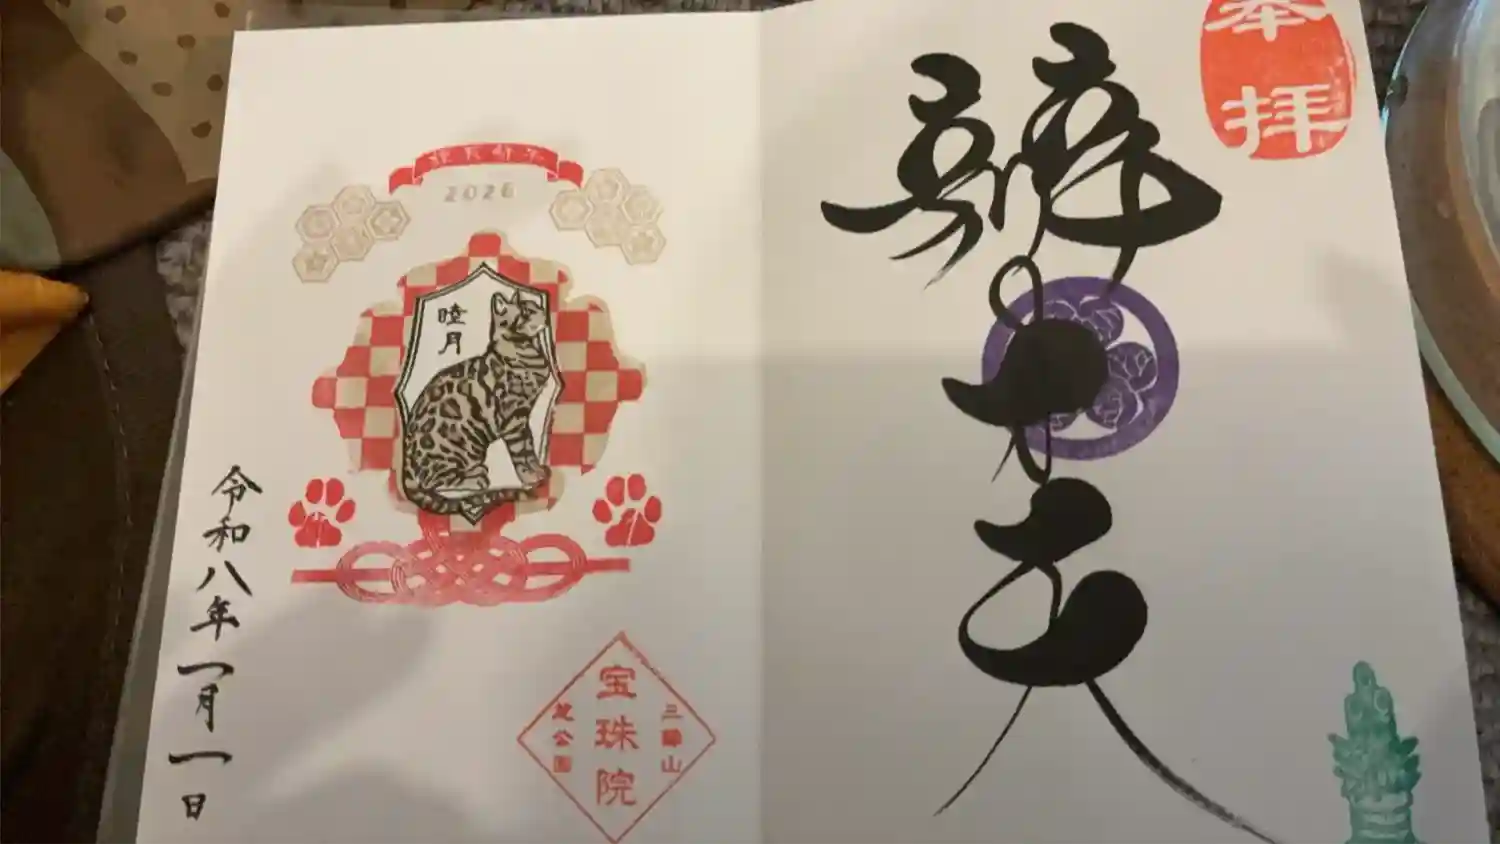 奉拝
才天
2026
睦月
三縁山
宝珠院
芝公園
令和八年一月一日